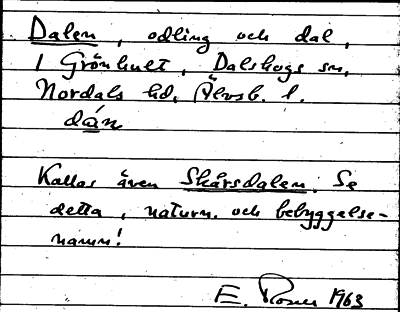 Dalen, odling och dal,
i Grönhult, Dalskogs sn,
Nordals hd, Älvsb. l.
dán
Kallas även Skårsdalen. Se
detta, naturn. och bebyggelse-
namn!
E. 1963